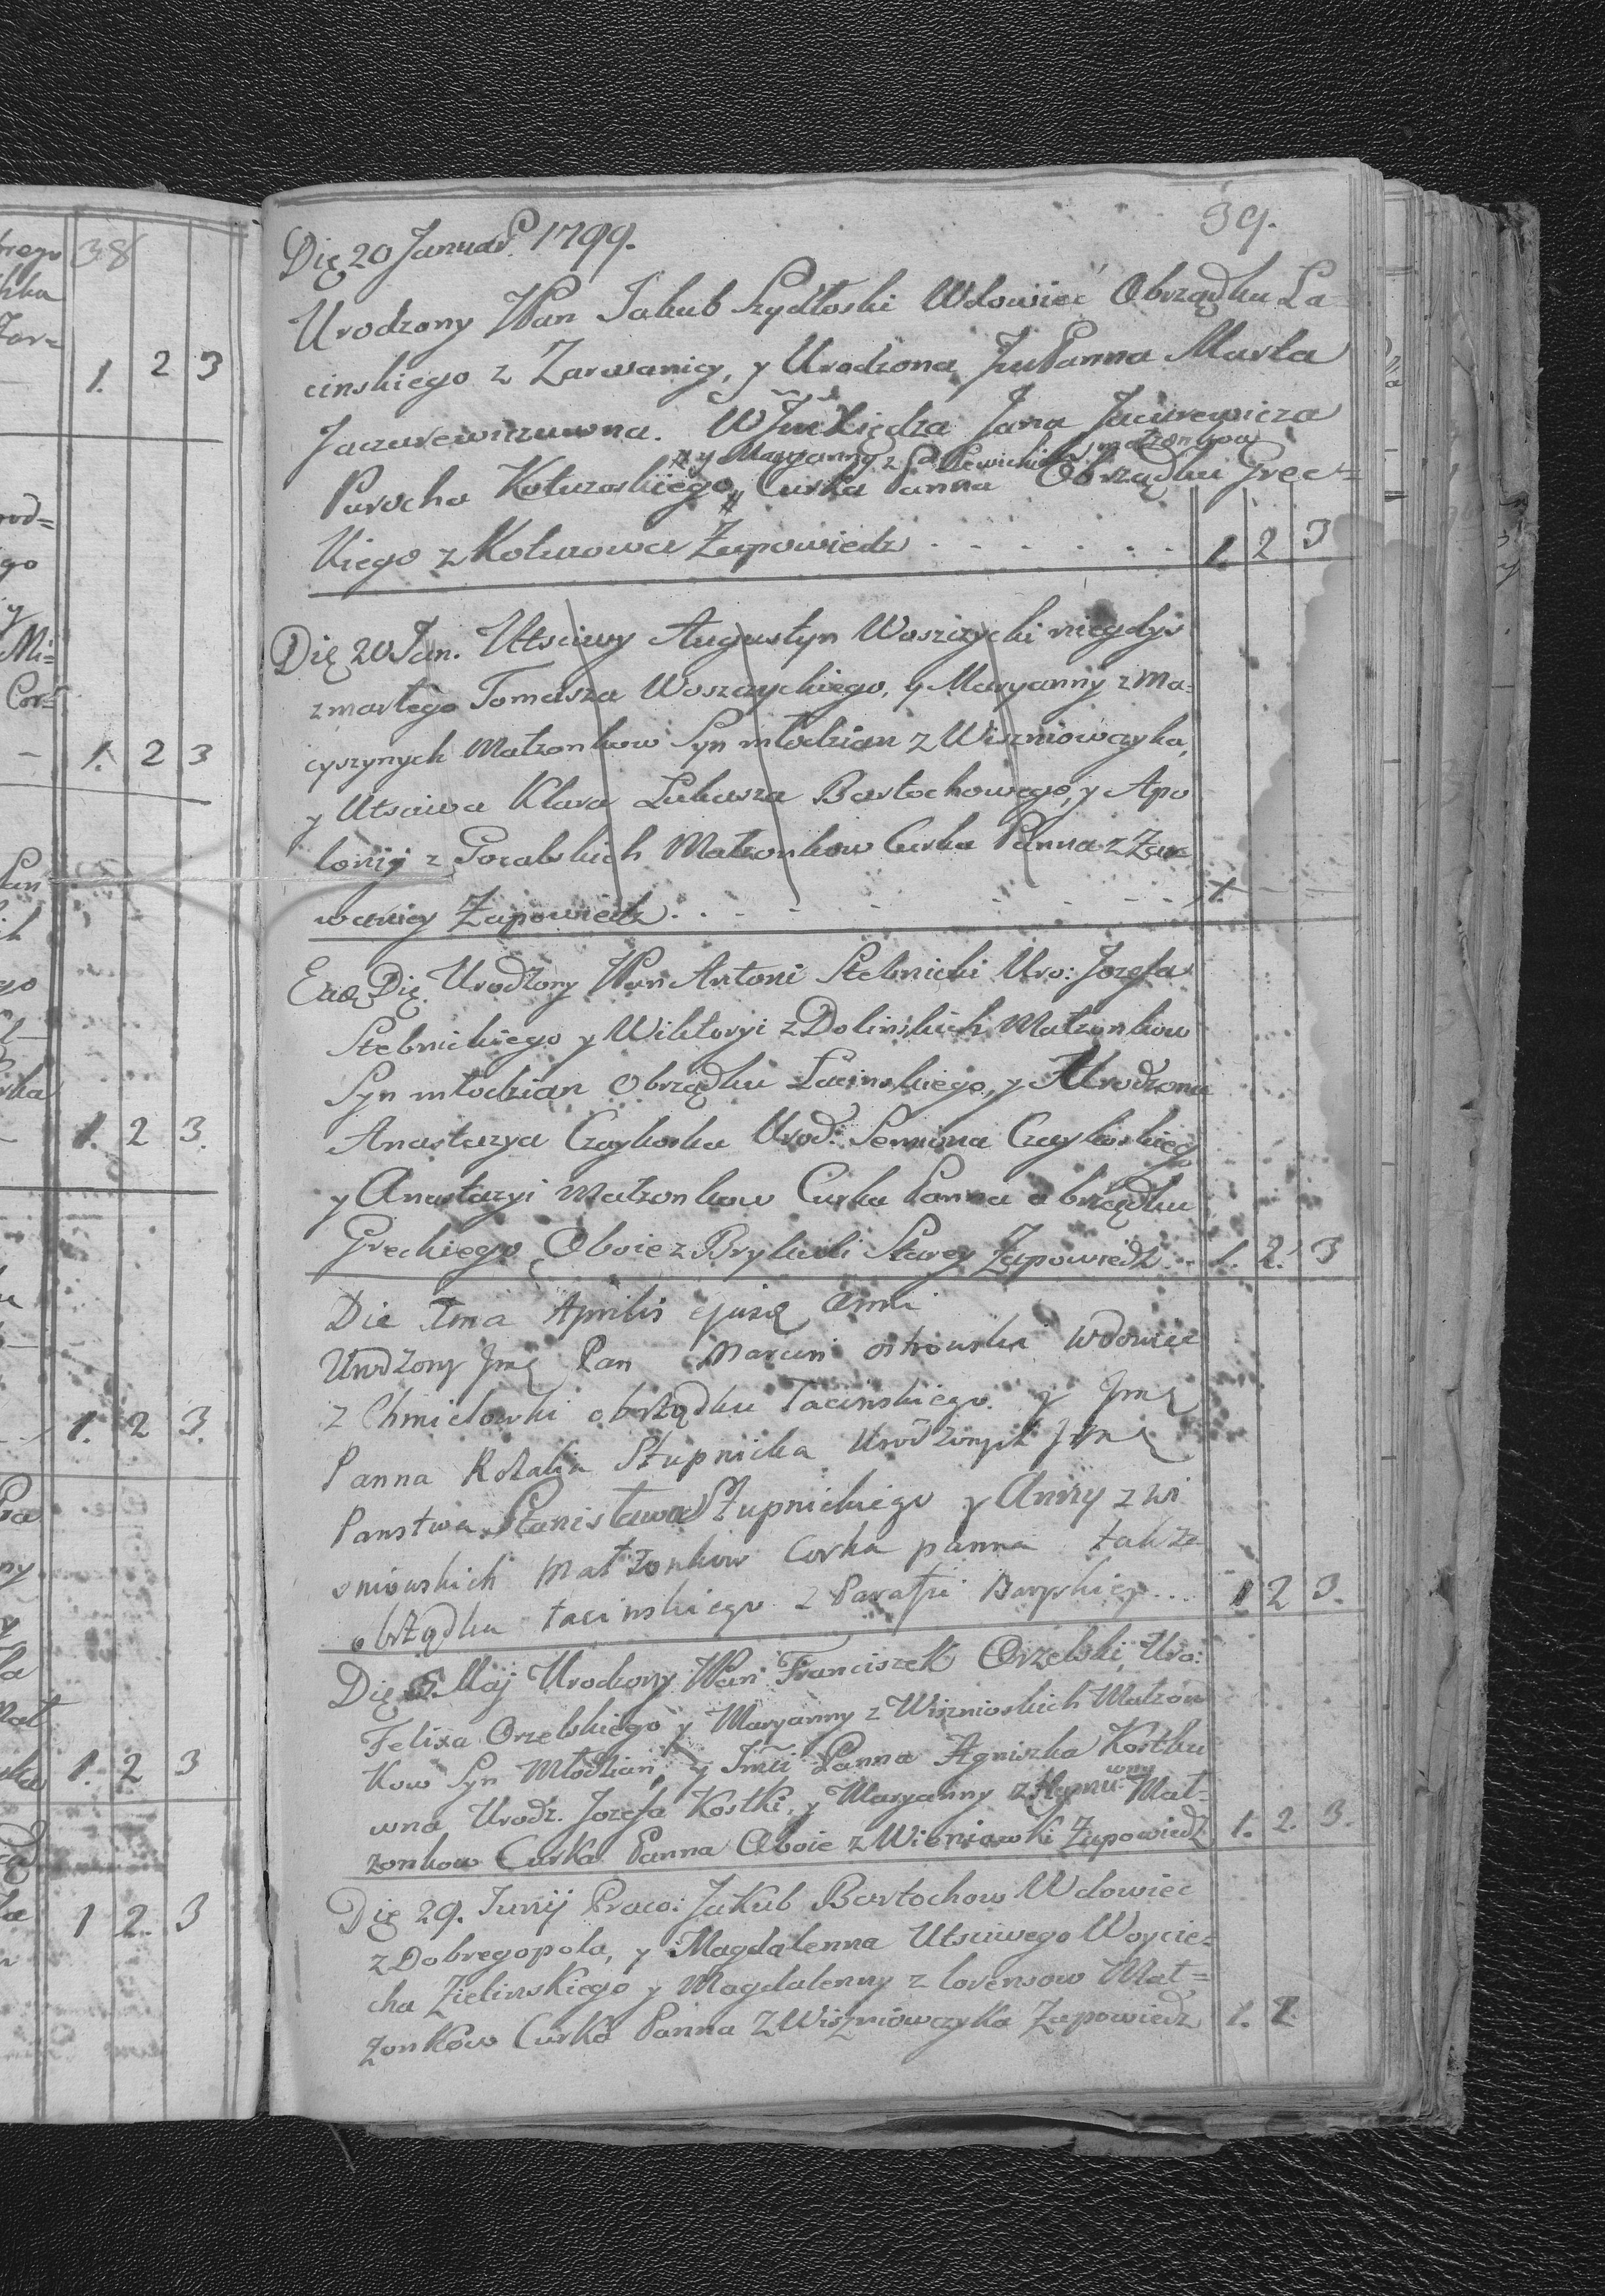 39.
Die 20 Januar. 1799.
Urodzony JPan Jakub Szydłoski Wdowiec Obrządku La
cinskiego z Zarwanicy, y Urodzona JmPanna Marta
Jaczurewiczuwna. WJm Xiędza Jana Jacurewicza
# y Maryanny z małzonkow
Parocha Koturoskiego # Curka Panna Obrządku Grec=
kiego z Koturowa Zapowiedz . . . . . . 1. 2 3
Die 20 Jan. Utsciwy Augustyn Woszczycki niegdys
zmarłego Tomasza Woszczyckiego, y Maryanny z Ma=
cyszynych Małzonkow Syn młodzian z Wiszniowczyka,
y Utsciwa Klara Lukasza Bartochowego, y Apo
lonij z Goralskich Małzonkow Curka Panna z Zar
wanicy Zapowiedz. . . . . . . . 1.
Eadę Die. Urodzony JPan Antoni Stebnicki Uro: Jozefa
Stebnickiego y Wiktoryi z Dolinskich Małzonkow
Syn młodzian Obrządku Łacinskiego, y Urodzona
Anastazya Czaykoska Urod: Semiona Czaykoskieg
y Anastazyi Małzonkow Curka Panna obrządku
Greckiego Oboie z Brykuli Starey Zapowiedz . . 1. 2. 3
Die 1ma Aprilis ejusdę Anni
Urodzony Jmę Pan Marcin Ostrowski wdowiec
z Chmielowki obrządku Łacinskiego y Jmę
Panna Rozalia Stupnicka Urodzonych Jmę
Panstwa Stanisława Stupnickiego y Anny z Wi
sniowskich Małzonkow Corka panna takze
obrządku łacinskiego z Parafii Baryskiey . . . 1 2 3.
Die 5. Maj Urodzony JPan Franciszek Orzelski Uro:
Felixa Orzelskiego y Maryanny z Wisznioskich Małzon
kow Syn Młodzian, y Jmci Panna Agniszka Kostku
wna Urodz. Jozefa Kostki, y Maryanny Mał=
zonkow Curka Panna Oboie z Wisniowki Zapowiedz 1. 2. 3.
Die 29. Junij Praco: Jakub Bartochow Wdowiec
z Dobregopola, y Magdalenna Utsciwego Woycie=
cha Zielinskiego y Magdalenny z Lorensow Mał=
zonkow Curka Panna z Wiszniowczyka Zapowiedz 1. 2.
38
1. 2 3
1. 2 3
1. 2 3.
1. 2 3.
1. 2 3
1 2. 3